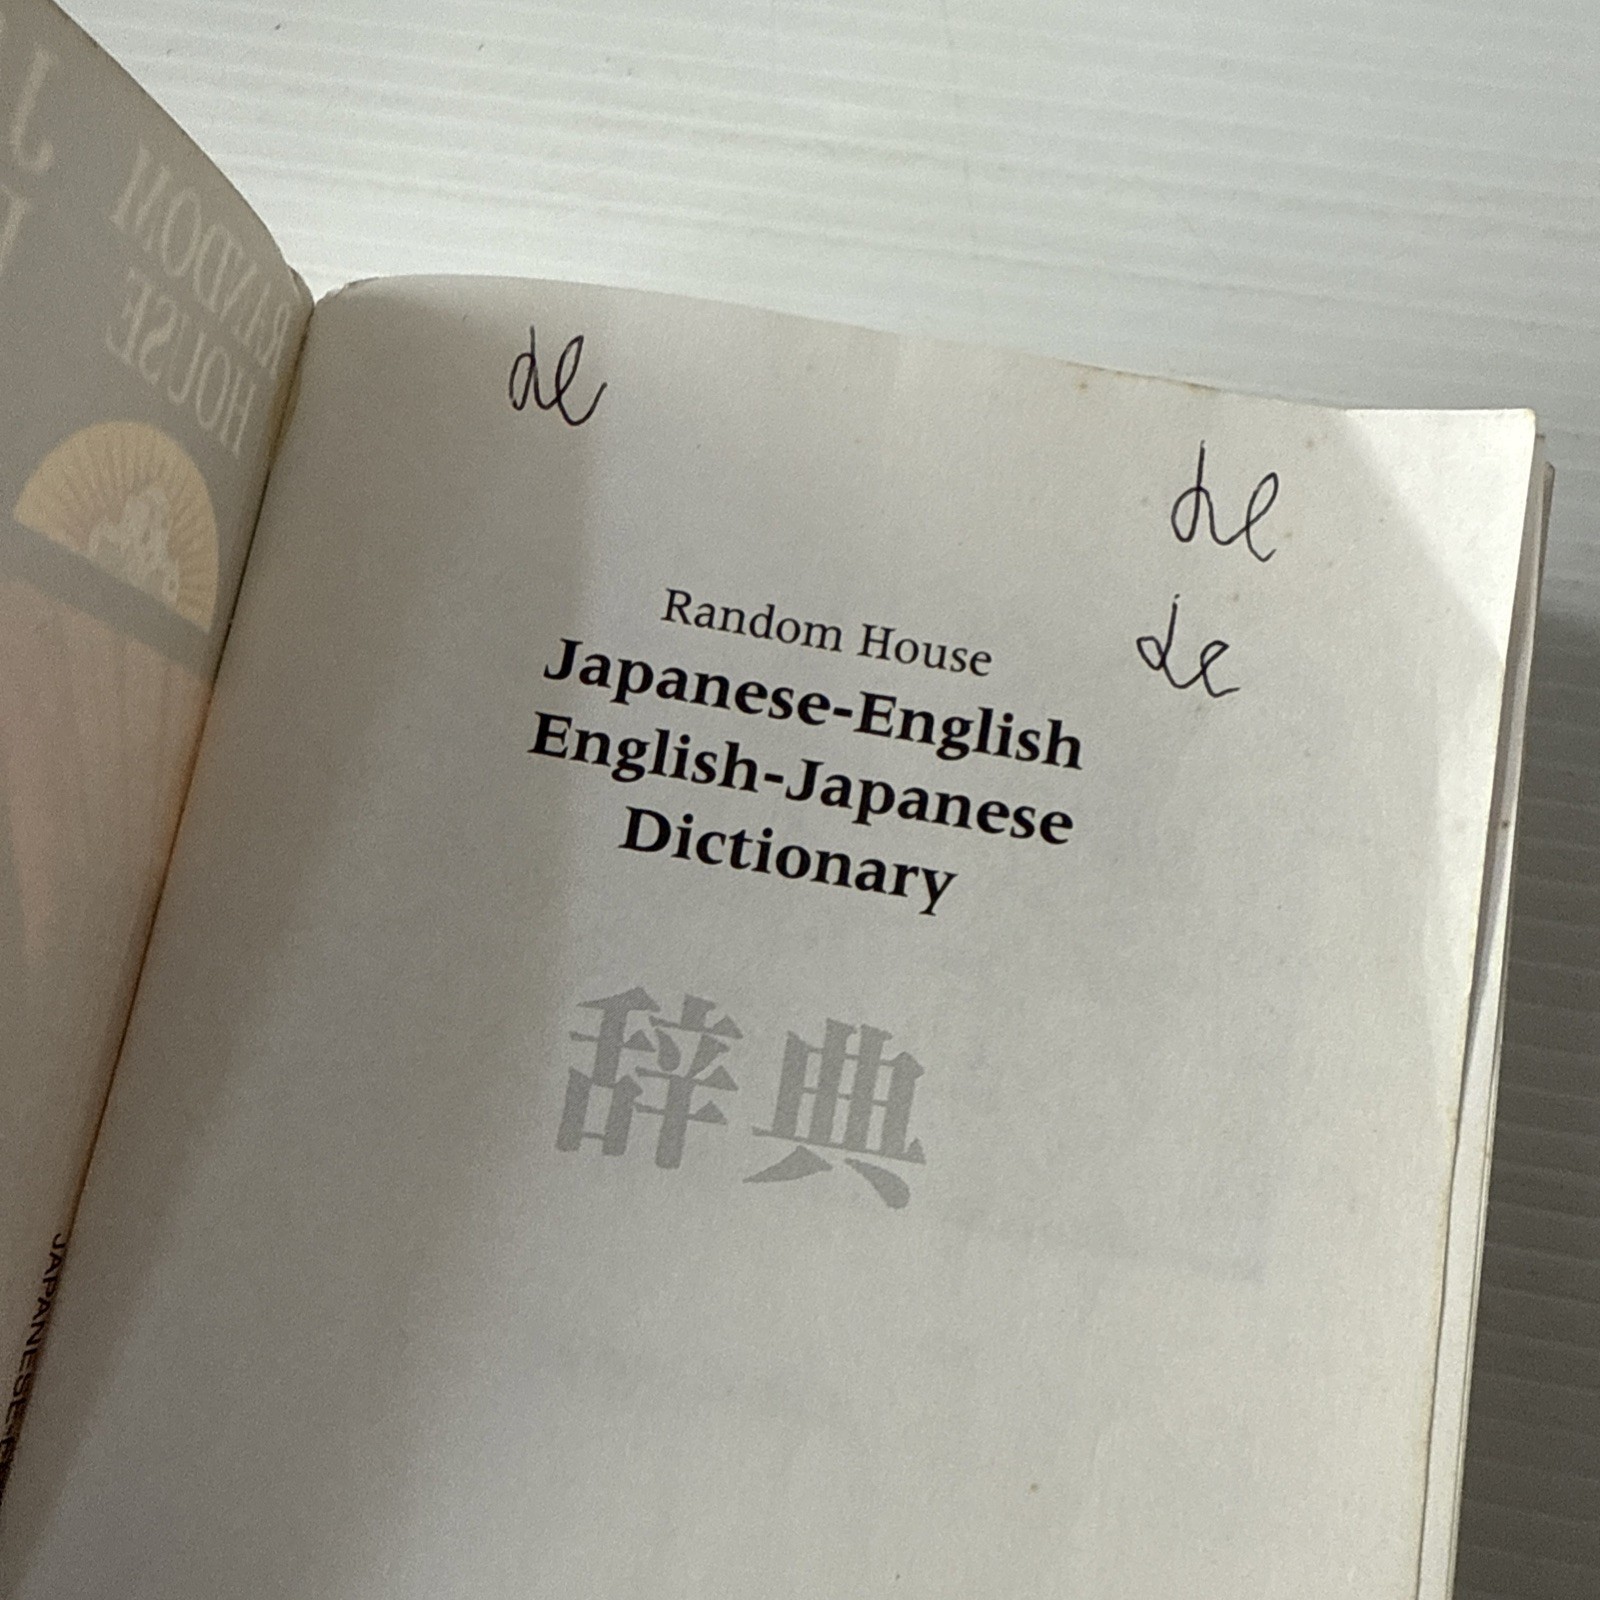 RANDOM
HOUSE
de
de
de
Random House
Japanese-English
English-Japanese
Dictionary
辞典
JAPANESE-E